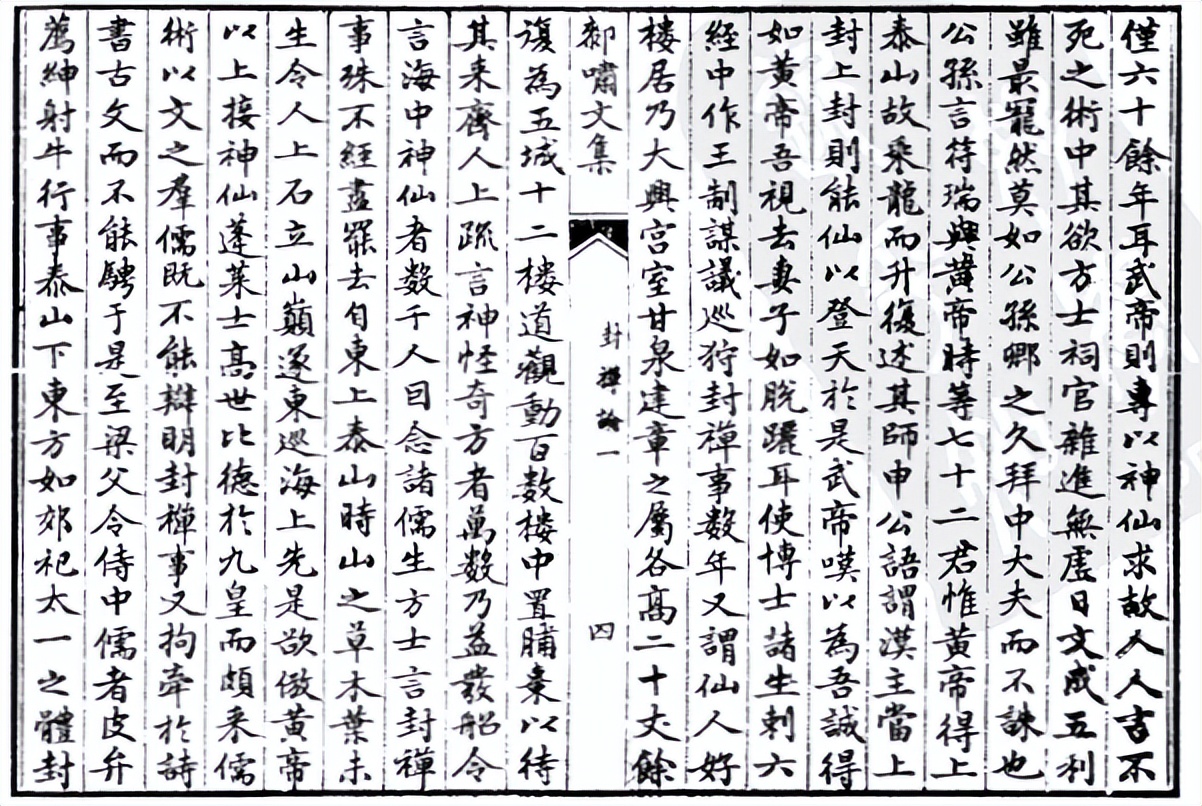 僅六十餘年耳武帝則專以神仙求故人人言不
死之術中其欲方士祠官雜進無虛日文成五利
雖最寵然莫如公孫卿之久拜中大夫而不誅也
公孫言待瑞與黃帝時等七十二君惟黃帝得上
泰山故乘龍而升復述其師申公語謂漢主當上
封上封則能仙以登天於是武帝嘆以為吾誠得
如黃帝吾視去妻子如脫躧耳使博士諸生刺六
經中作王制謀議巡狩封禪事数年又謂仙人好
楼居乃大興宮室甘泉建章之屬各高二十丈餘
郝嘯文集
封禪論一
四
復為五城十二楼道觀動百数楼中置脯棗以待
其来齊人上疏言神怪奇方者萬数乃益發船令
言海中神仙者数千人回念諸儒生方士言封禪
事殊不經盡罷去自東上泰山時山之草木葉未
生令人上石立山巔遂東巡海上先是欲倣黃帝
以上接神仙蓬萊士高世比德於九皇而頗来儒
術以文之羣儒既不能辯明封禪事又拘牽於詩
書古文而不能騁于是至梁父令侍中儒者皮弁
薦紳射牛行事泰山下東方如郊祀太一之體封